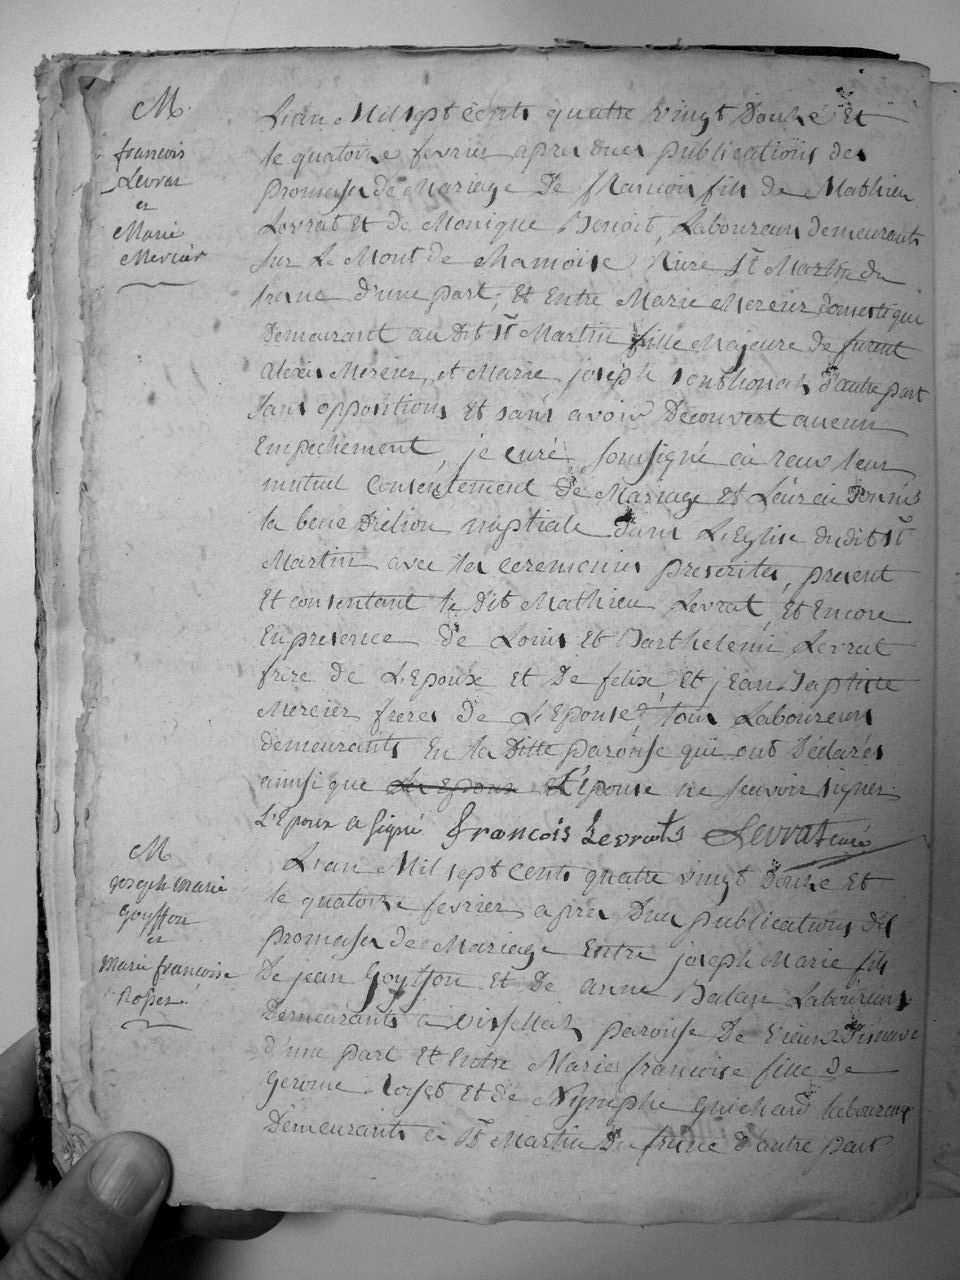 M.
francois
Levrat
et
Marie
Mercier
L'an Mil sept cents quatre vingt Douze Et
le quatorze fevrier apres deux publications des
promesses de Mariage De francois fils de Mathieu
Levrat Et de Monique Benoit, Laboureurs demeurants
sur Le Mont de
St Martin du
fresne d'une part, Et Entre Marie Mercier Domestique
Demeurant au Dit St Martin fille Majeure de furent
Alexis Mercier, et Marie joseph d'autre part
sans oppositions Et sans avoir Decouvert aucun
Empechement, je curé soussigné ai reçu leur
mutuel consentement De Mariage et Leur ai Donnés
la bene Diction nuptiale Dans L'Eglise dudit St
Martin avec les ceremonies prescrites, present
Et consentant le Dit Mathieu Levrat, Et Encore
En presence De Louis Et Barthelemi Levrat
frere de L'Epoux Et De felix Et jean Baptiste
Mercier freres De L'Epouse, tous Laboureurs
demeurants En la Ditte paroisse qui ont Declarés
ainsi que Les Epoux L'épouse ne scavoir signer
L'Epoux a signé francois Levrats Levrat curé
M
joseph marie
goyffon
et
Marie francoise
Rosset
L'an Mil sept cents quatre vingt Douze Et
le quatorze fevrier apres Deux publications Des
promesses de Mariage Entre joseph Marie fils
De jean Goyffon Et De anne Balan Laboureurs
Demeurants a paroisse De
d'une part Et Entre Marie francoise fille de
Gerome Rosset Et de Nymphe Guichard laboureurs
Demeurants a St Martin Du fresne d'autre part